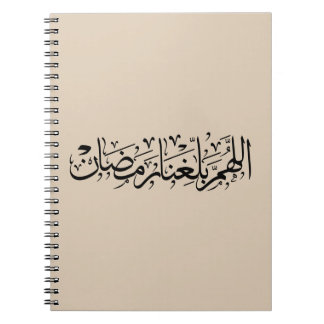 اللَّهُمَّ بَلِّغْنَا رَمَضَانْ